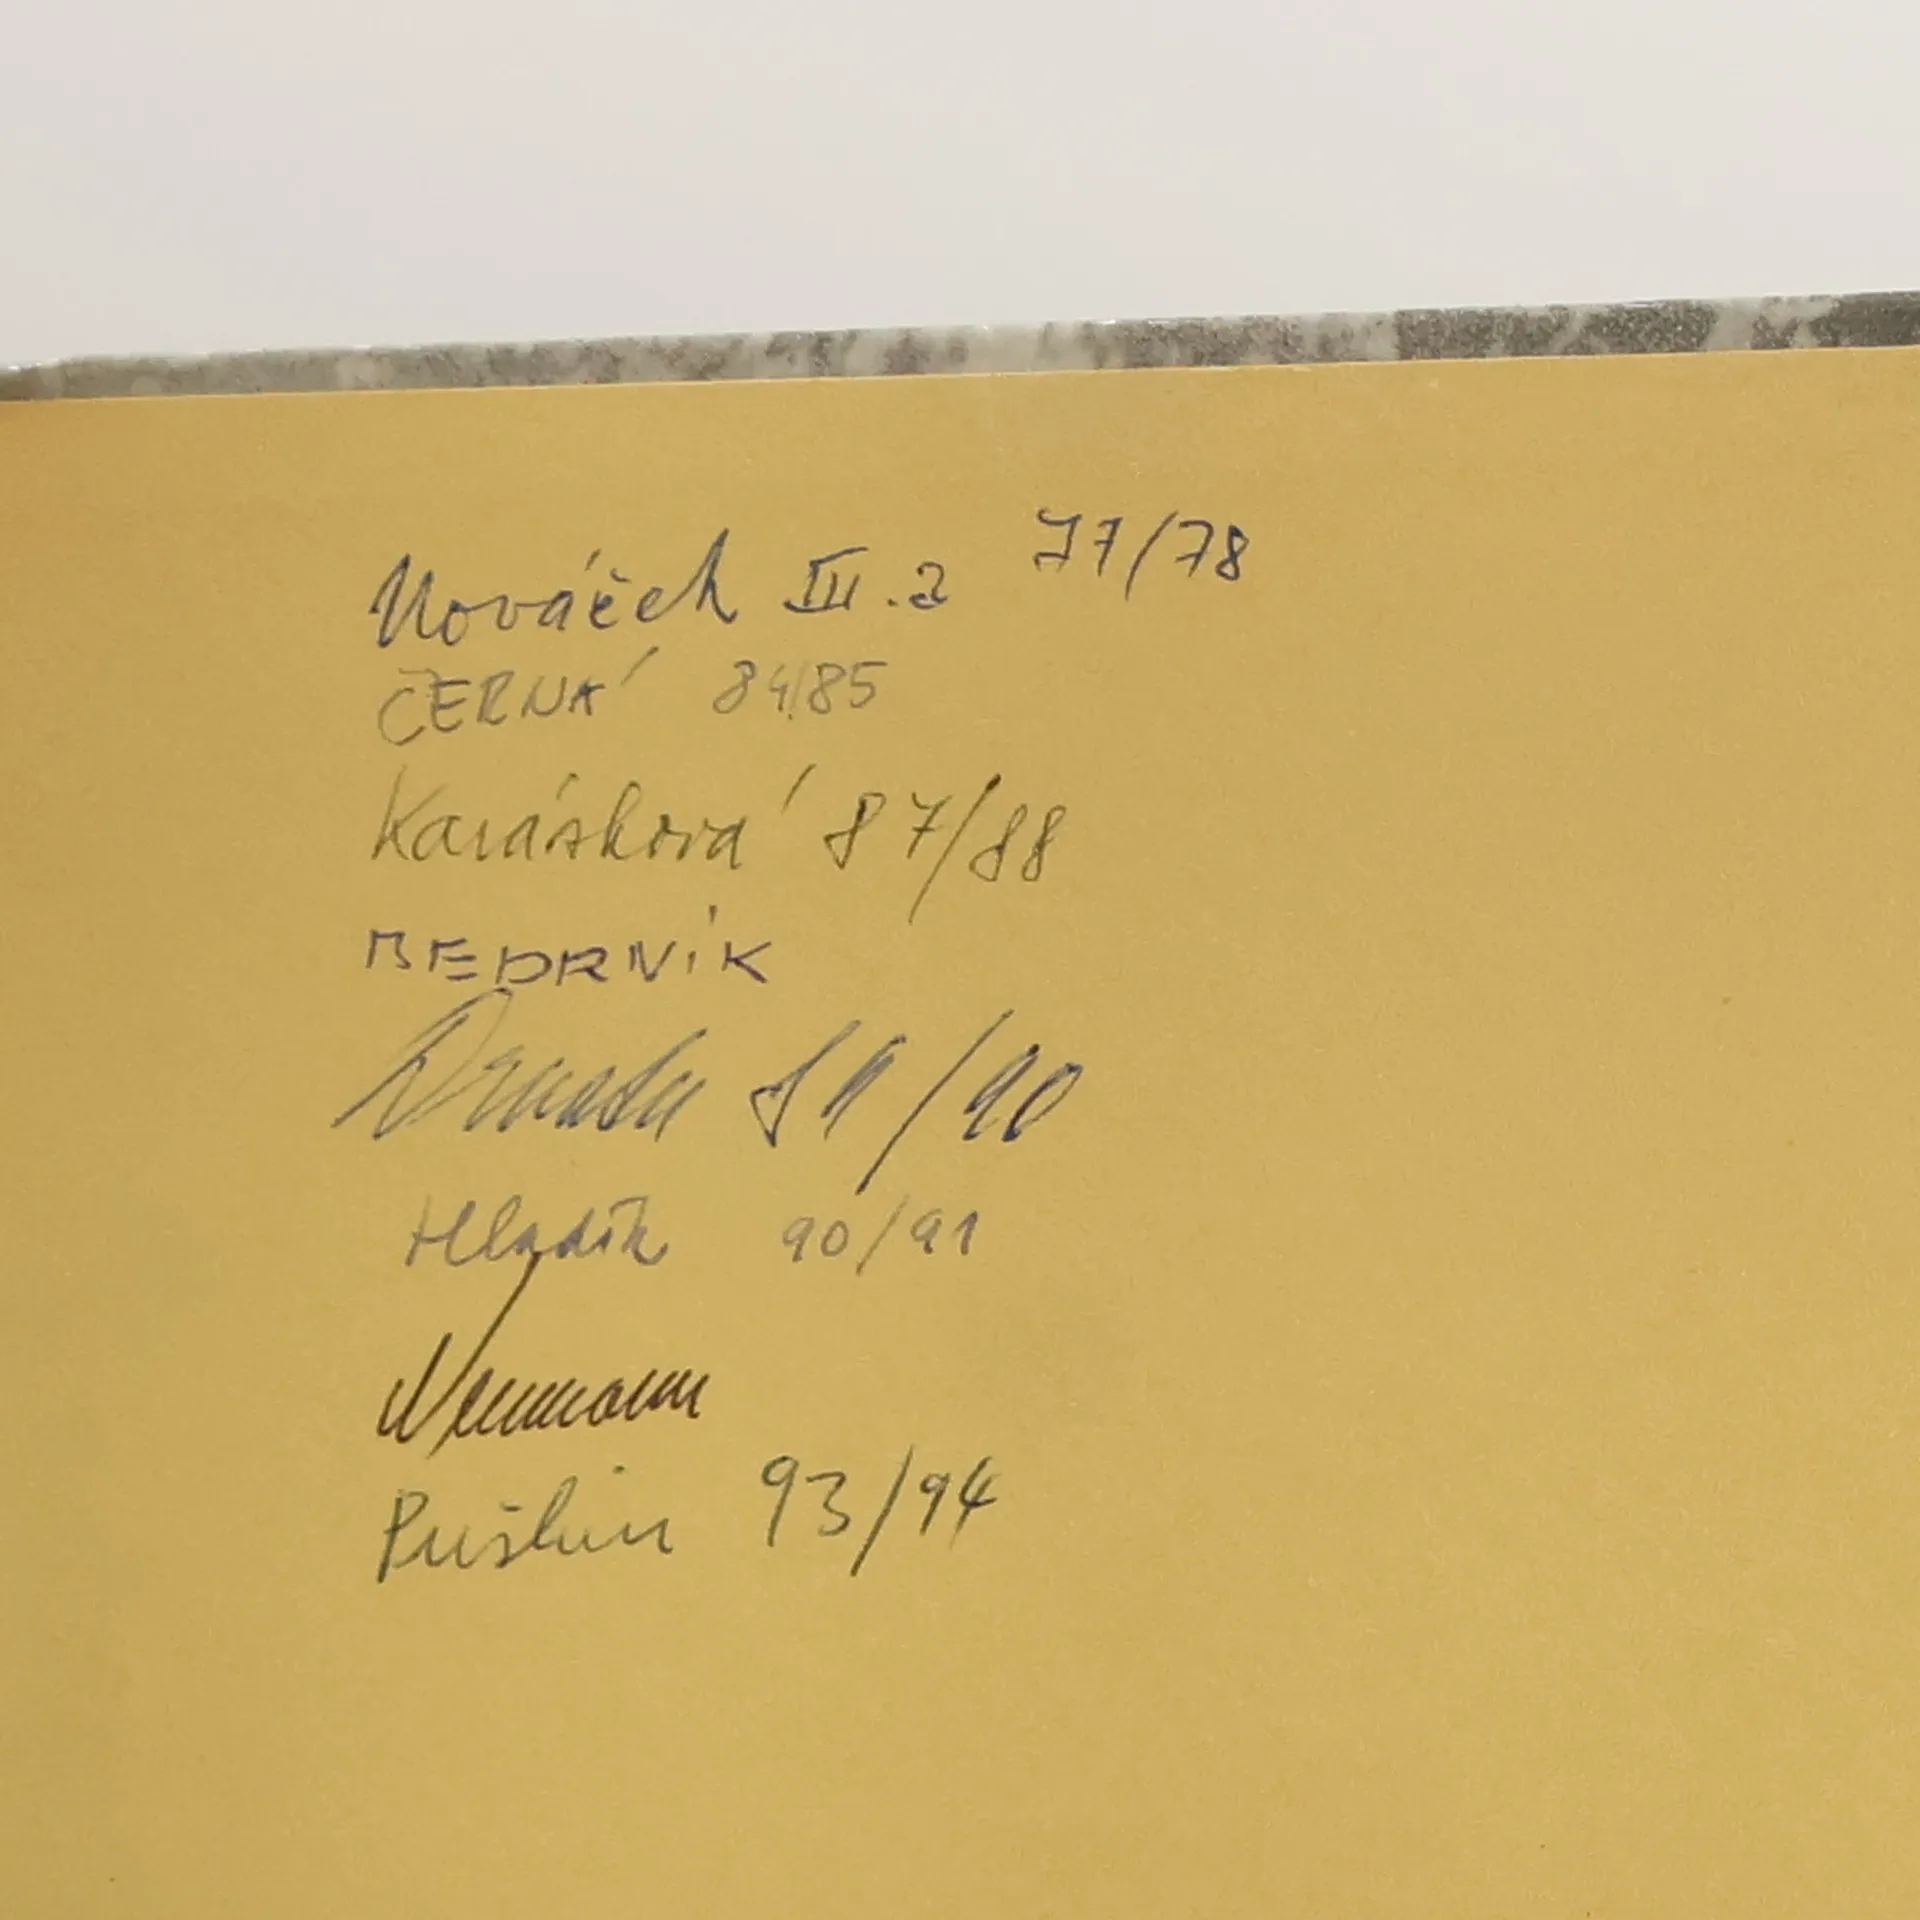 Nováček III.a 77/78
ČERNÁ 84/85
Karásková 87/88
BEDRNÍK
89/90
Hladík 90/91
Neumann
Puškin 93/94